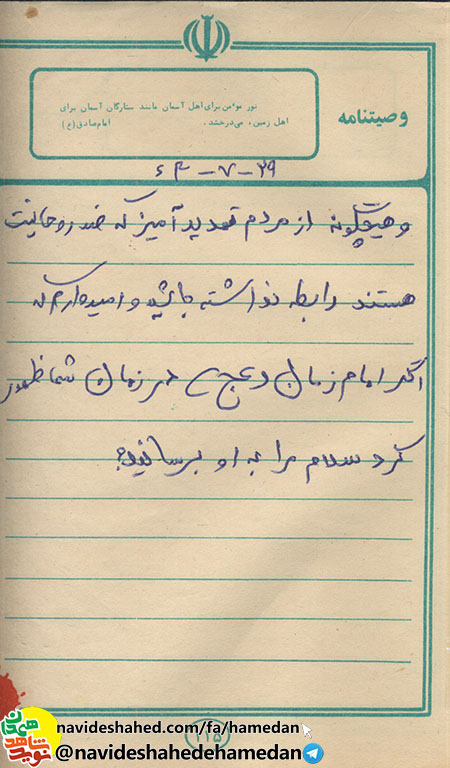 وصیتنامه
نور مؤمن برای اهل آسمان مانند ستارگان آسمان برای
اهل زمین، می‌درخشد. امام صادق (ع)
۶۳-۷-۲۹
و هیچگونه از مردم تهدید آمیز که ضد روحانیت
هستند رابطه نداشته باشید و امیدوارم که
اگر امام زمان (عج) در زمان شما ظهور
کرد سلام مرا به او برسانید.
۱۱۵
navideshahed.com/fa/hamedan
@navideshahedehamedan
نوید شاهد همدان